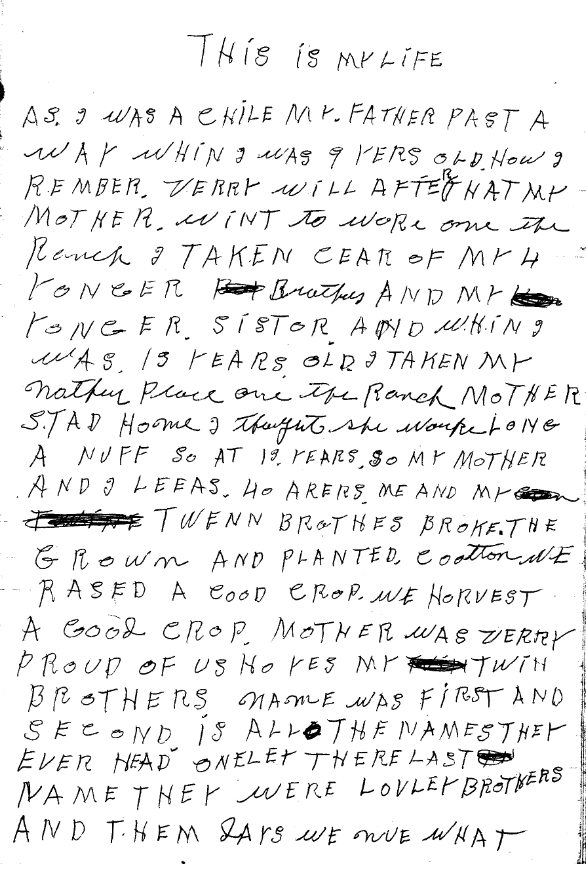 THIS IS MY LIFE
AS. I WAS A CHILE MY. FATHER PAST A
WAY WHIN I WAS 9 YERS OLD. HOW I
REMBER. VERRY WILL AFTER THAT MY
MOTHER. WINT to WORK one the
Ranch I TAKEN CEAR OF MY 4
YONGER Brothers AND MY
YONGER. SISTOR. AND WHIN I
WAS. 13 YEARS OLD I TAKEN MY
mother Place one the Ranch MOTHER
STAD Home I thought she worke LONG
A NUFF SO AT 19. YEARS, SO MY MOTHER
AND I LEEAS. 40 ARERS. ME AND MY
TWENN BROTHES BROKE. THE
GROWN AND PLANTED. Cootton WE
RASED A GOOD CROP. WE HORVEST
A GOOD CROP. MOTHER WAS VERRY
PROUD OF US HO YES MY TWIN
BROTHERS NAME WAS FIRST AND
SECOND IS ALL THE NAMES THEY
EVER HEAD ONELEY THERE LAST
NAME THEY WERE LOVLEY BROTHERS
AND THEM DAYS WE WHAT